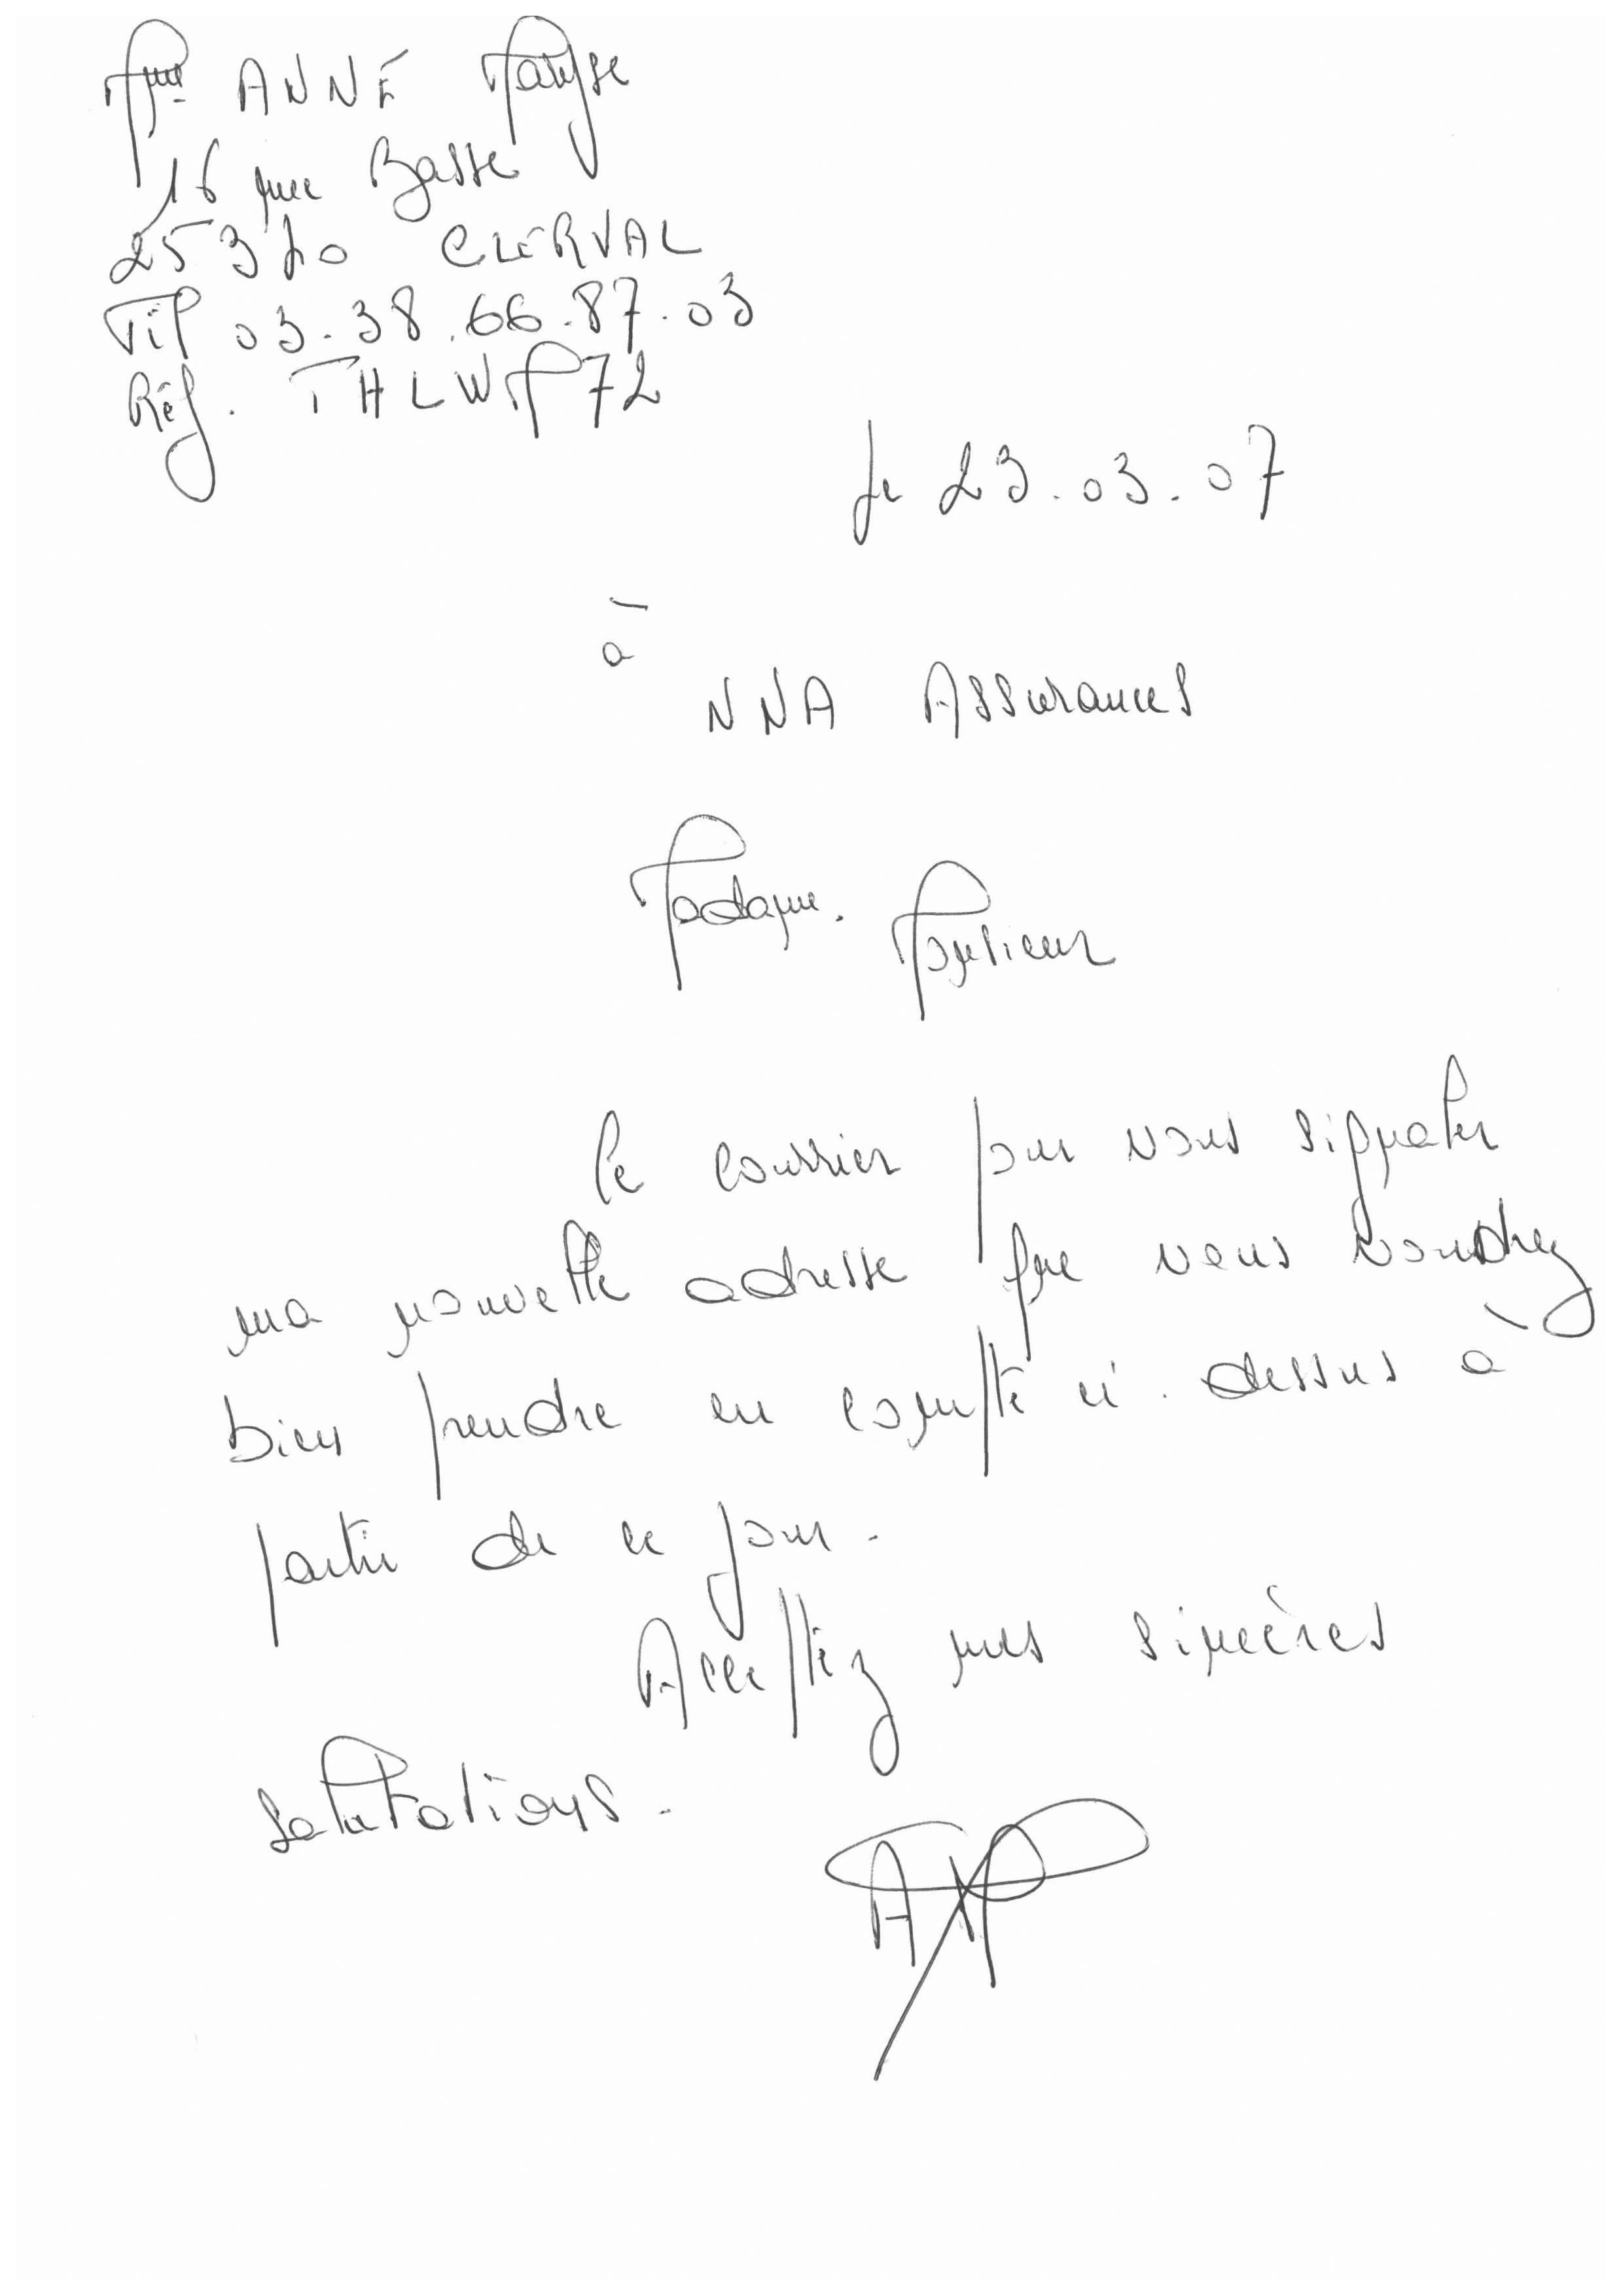 Mme ANNE Maryse
16 rue Basse
25340 CLERVAL
Tél 03.38.66.87.03
Réf. THLWM72
le 23.03.07
à
NNA Assurances
Madame. Monsieur
Ce courrier pour vous signaler
ma nouvelle adresse que vous voudrez
bien prendre en compte ci-dessus à
partir de ce jour.
Acceptez mes sincères
salutations.
AM